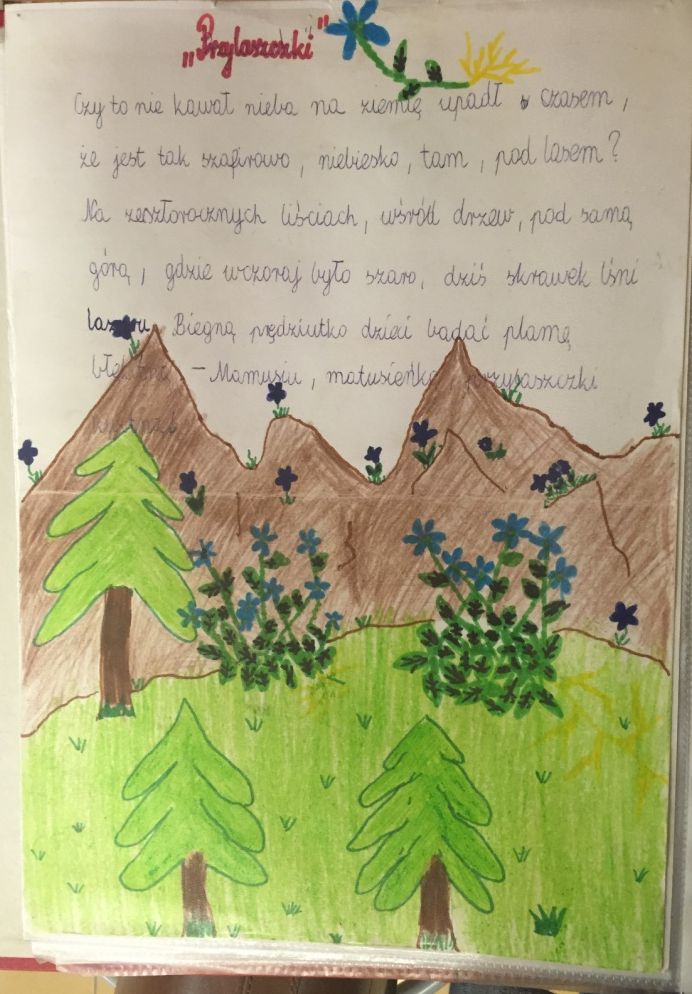 „Przylaszczki"
Czy to nie kawał nieba na ziemię upadł czasem,
że jest tak szafirowo, niebiesko, tam, pod lasem?
Na zeszłorocznych liściach, wśród drzew, pod samą
górą, gdzie wczoraj było szaro, dziś skrawek lśni
lazuru. Biegną prędziutko dzieci badać plamę
– Mamusiu, matusieńko, przylaszczki